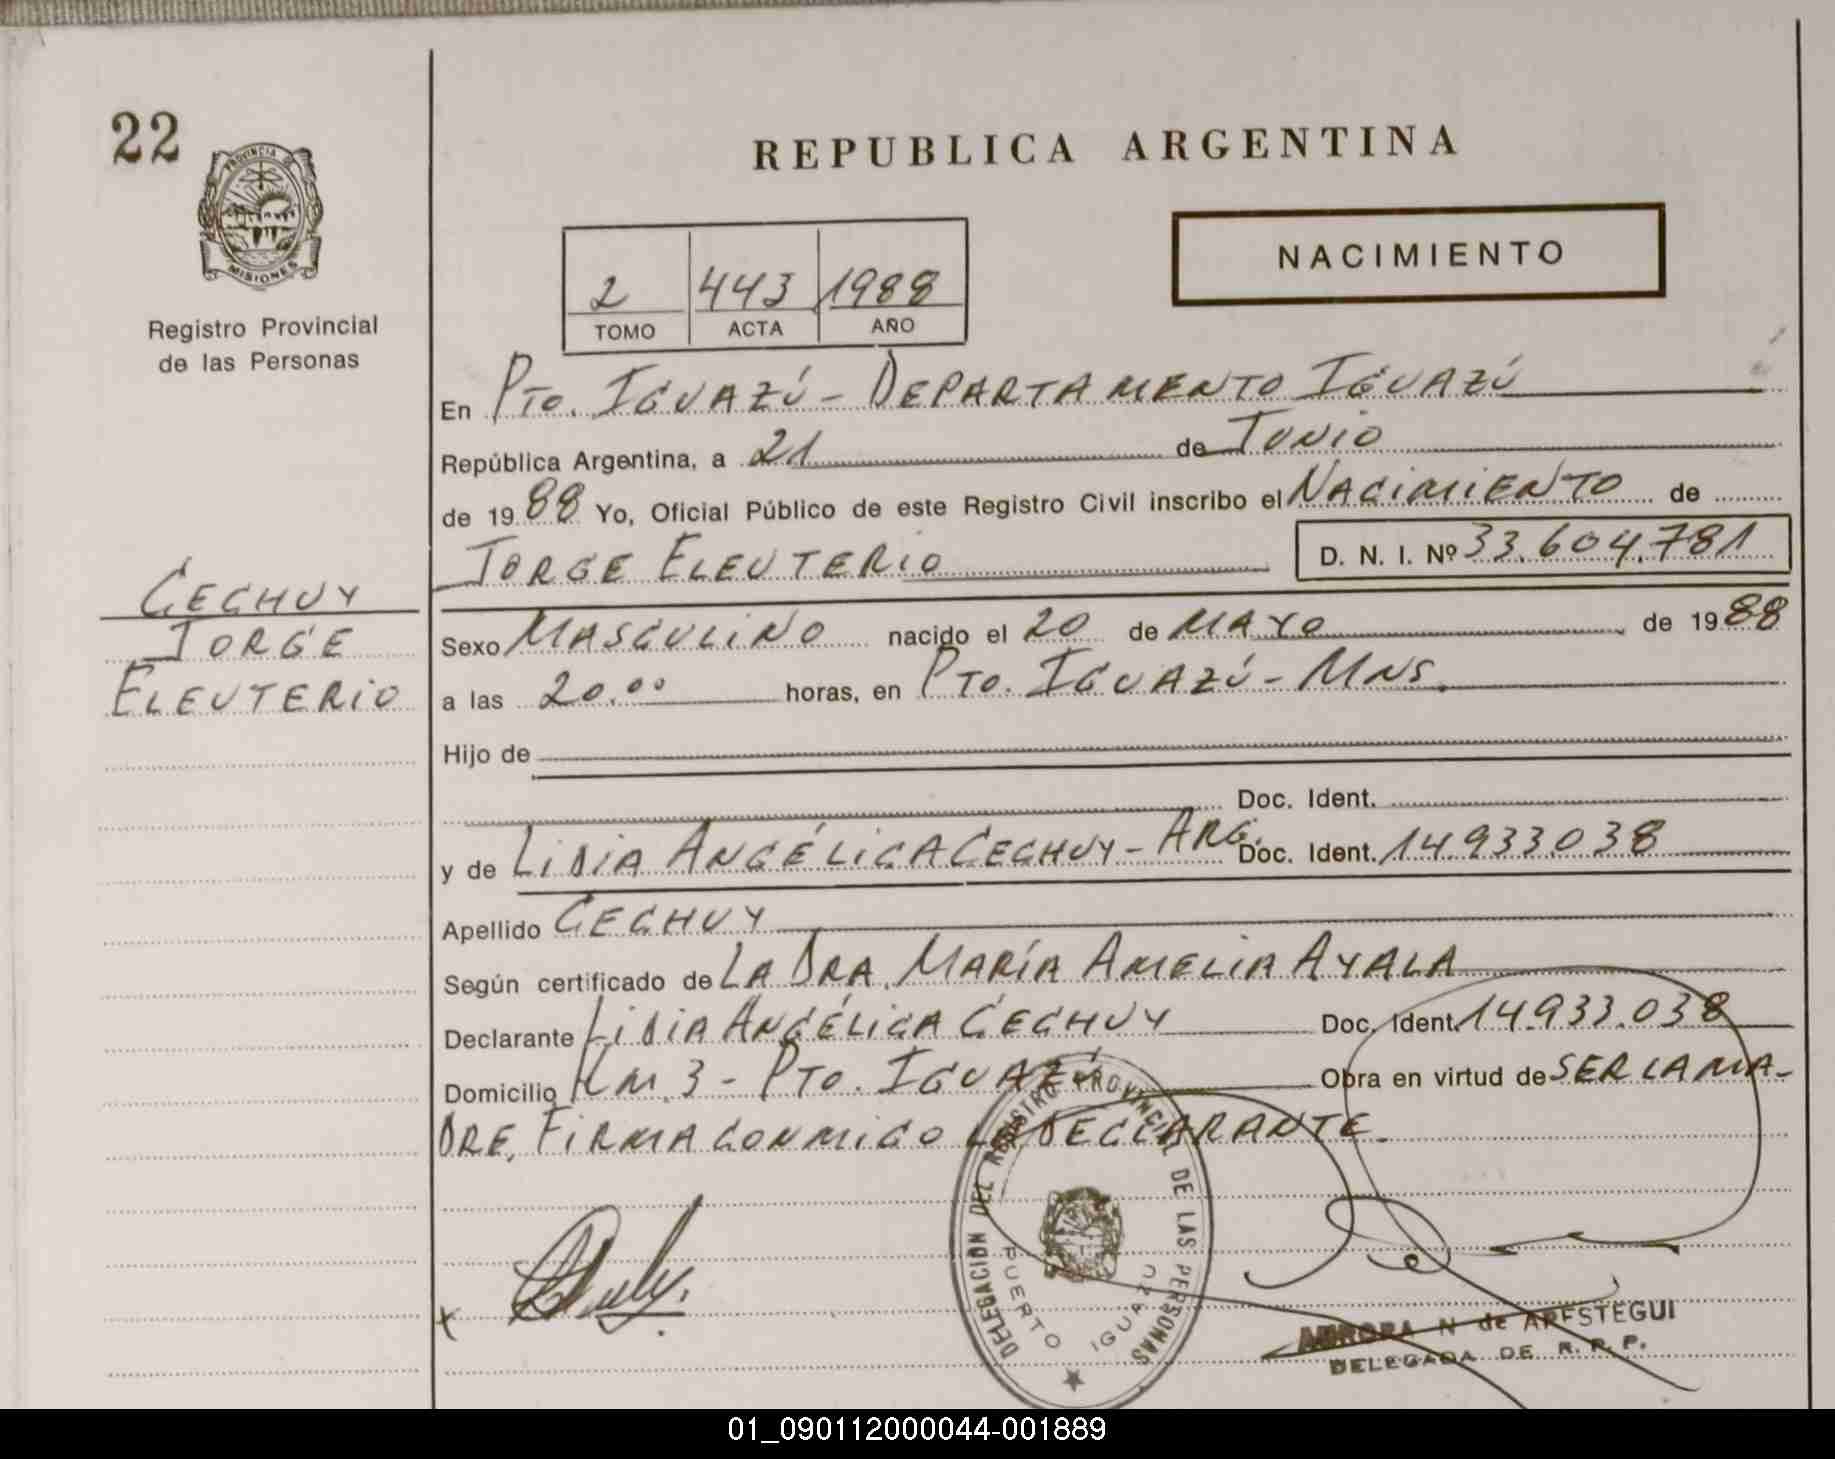 22
PROVINCIA DE
MISIONES
Registro Provincial
de las Personas
CECHUY
JORGE
ELEUTERIO
REPUBLICA ARGENTINA
NACIMIENTO
2 443 1988
TOMO ACTA AÑO
En PTO. IGUAZÚ - DEPARTAMENTO IGUAZÚ
República Argentina, a 21 de JUNIO
de 1988 Yo, Oficial Público de este Registro Civil inscribo el NACIMIENTO de
JORGE ELEUTERIO D. N. I. Nº 33.604.781
Sexo MASCULINO nacido el 20 de MAYO de 1988
a las 20.00 horas, en PTO. IGUAZÚ - MNS.
Hijo de
Doc. Ident.
y de LIDIA ANGÉLICA CECHUY - ARG. Doc. Ident. 14.933.038
Apellido CECHUY
Según certificado de LA DRA. MARÍA AMELIA AYALA
Declarante LIDIA ANGÉLICA CECHUY Doc. Ident. 14.933.038
Domicilio KM. 3 - PTO. IGUAZÚ Obra en virtud de SER LA MA-
DRE. FIRMA CONMIGO LA DECLARANTE.
DELEGACION DEL REGISTRO PROVINCIAL DE LAS PERSONAS
PUERTO IGUAZU
X
AURORA N de ARESTEGUI
DELEGADA DE R. P. P.
01_090112000044-001889